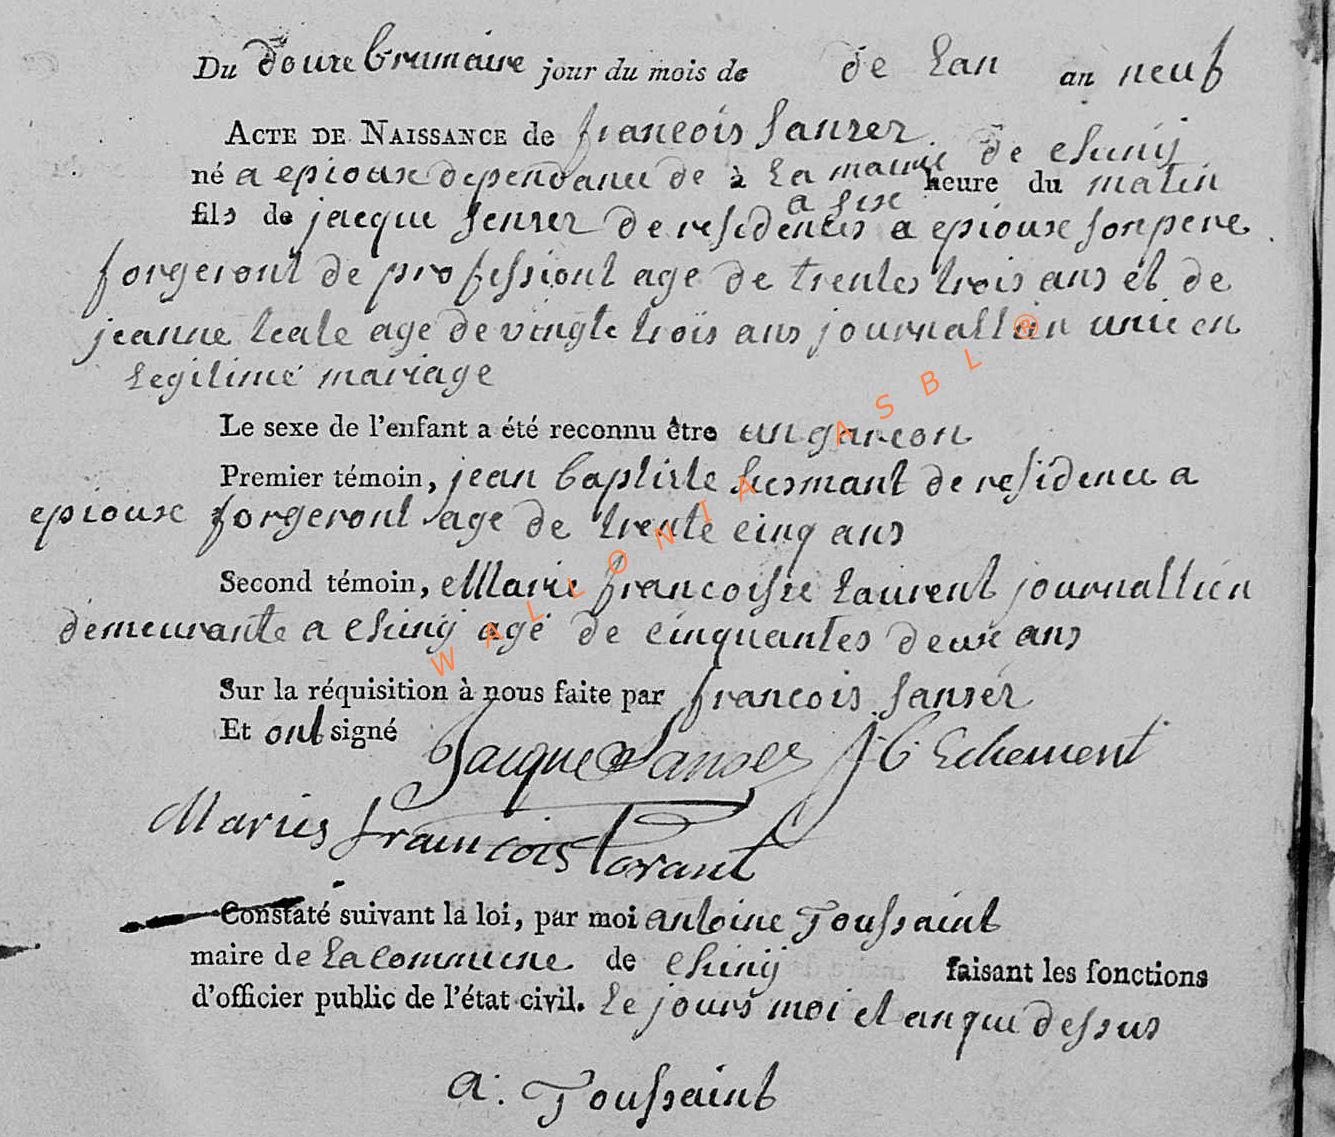 Du douze brumaire jour du mois de de Lan an neuf
Acte de Naissance de francois sanzez
né a epioux dependance de à La mairie de chiny
a six heure du matin
fils de jacque senzez de residences a epioux son pere
forgeront de profissiont age de trentes trois ans et de
jeanne age de vingte troïs ans journallién unie en
Legitime mariage
Le sexe de l'enfant a été reconnu être un garcon
Premier témoin, jean baptiste de residence a
epioux forgeront age de trente cinq ans
Second témoin, Marie francoisse Laurent journallién
demeurante a chiny agé de cinquantes deux ans
Sur la réquisition à nous faite par francois sanzéz
Et ont signé Jacque Sanses J b Echement
Maries francois Lorant
Constaté suivant la loi, par moi antoine Toussaint
maire de La Commune de chiny faisant les fonctions
d'officier public de l'état civil. Le jours moi et an que dessus
a: Toussaint
WALLONIA ASBL ®